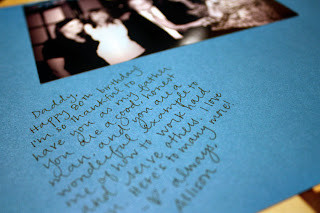 Daddy,
Happy 60th birthday!
I'm so thankful to
have you as my father.
You are a good, honest
man, and you are a
wonderful example to
me of how to work hard
and serve others. I love
you. Here's to many more!
-V- always,
Allison